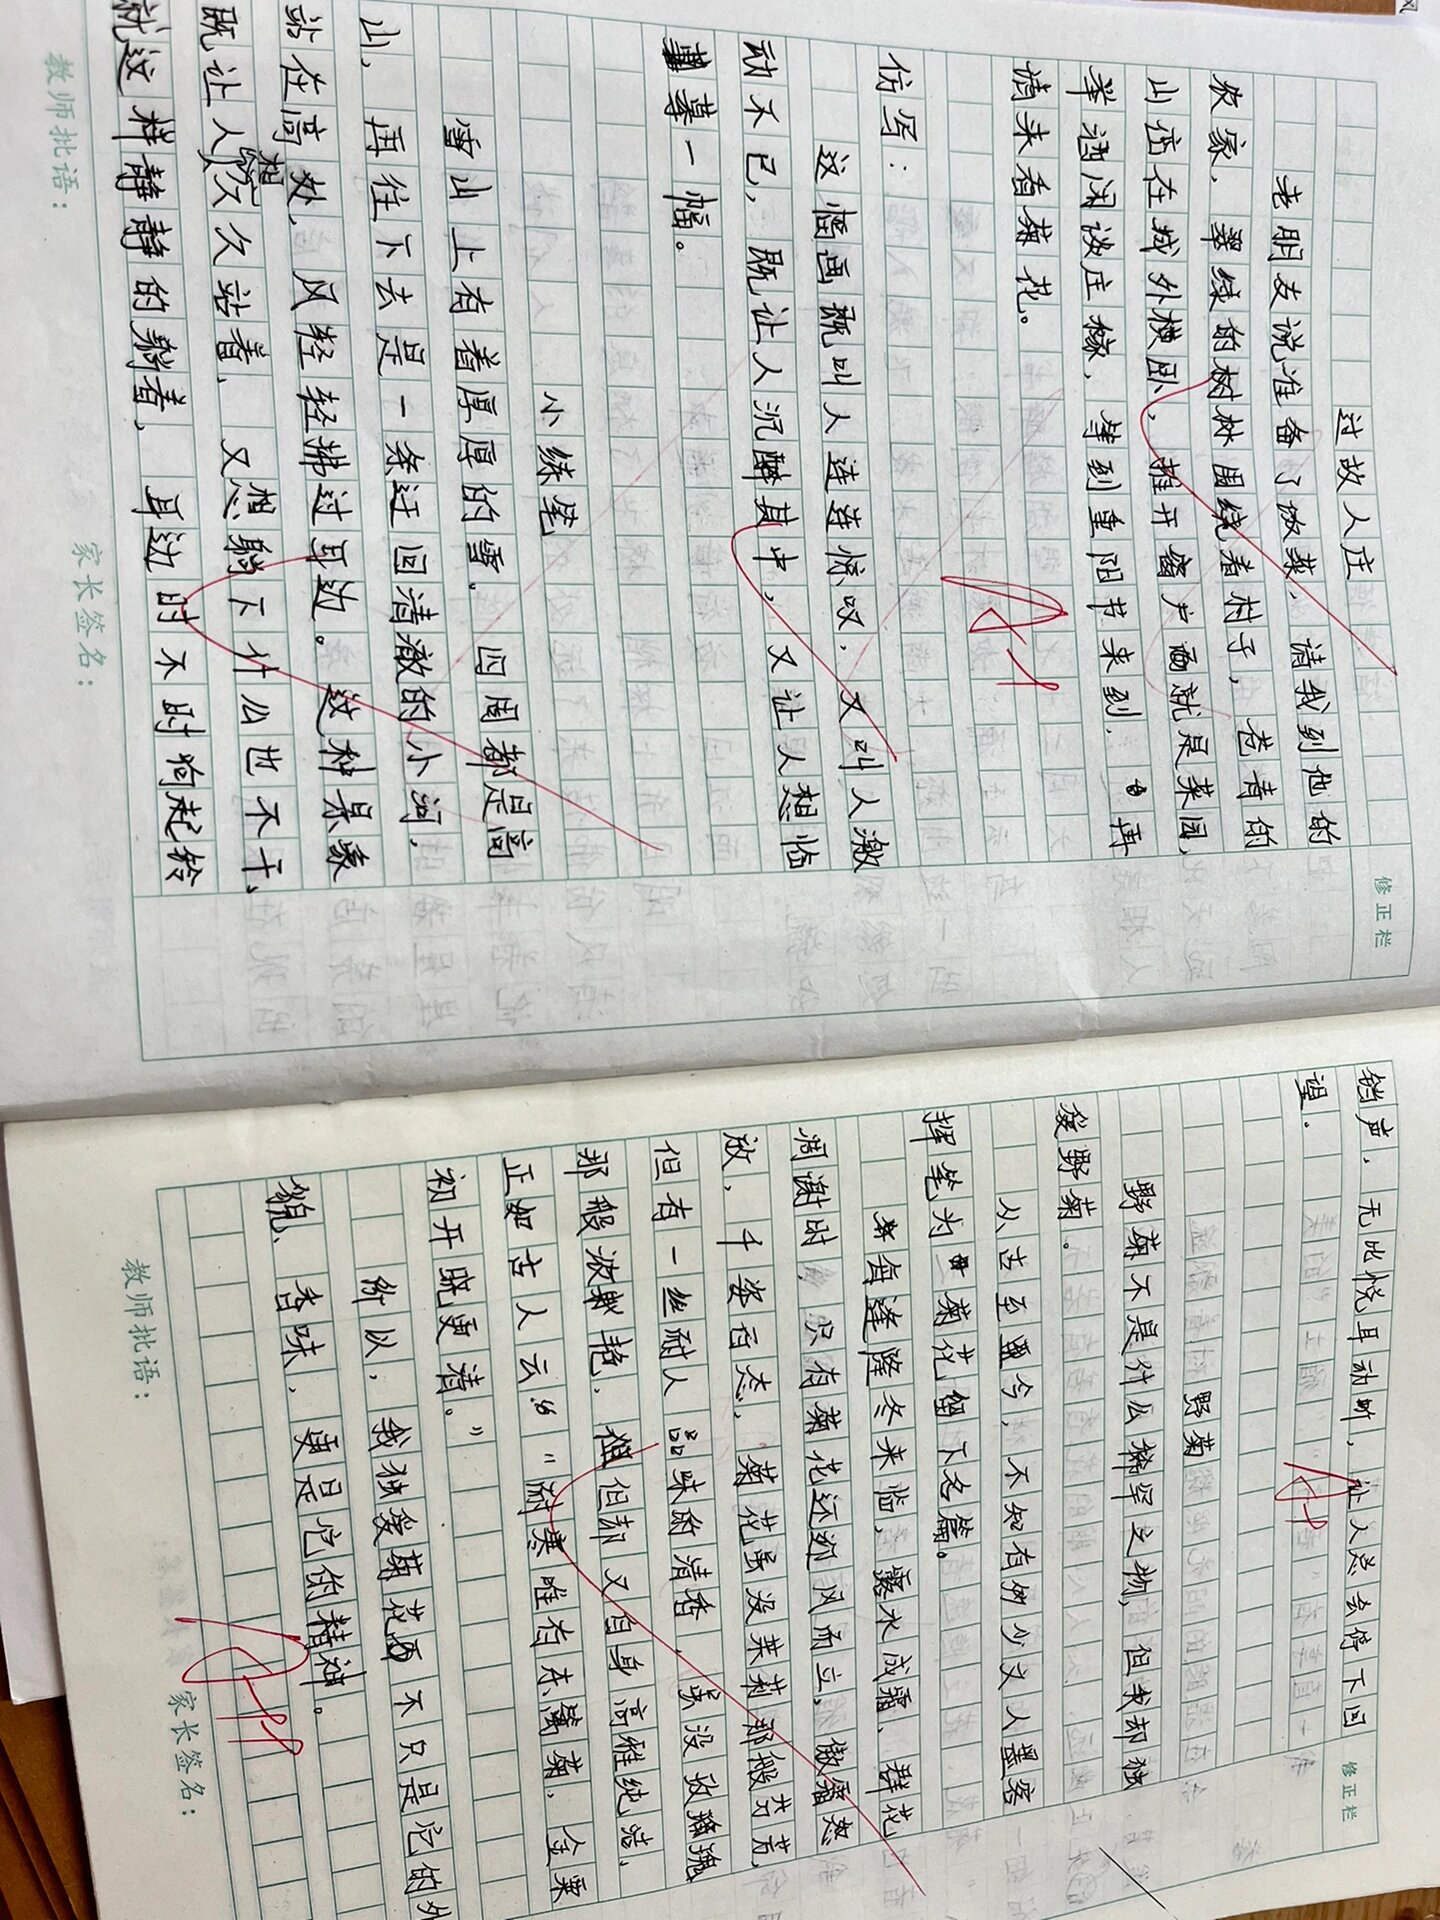 修正栏
过故人庄
老朋友说准备了饭菜，请我到他的
农家，翠绿的树林围绕着村子，苍青的
山峦在城外横卧，推开窗户面就是菜园，
举酒闲谈庄稼，等到重阳节来到，再
摘来看菊花。
A-1
仿写：
这幅画既叫人连连惊叹，又叫人激
动不已，既让人沉醉其中，又让人想临
摹一幅。
小练笔
雪山上有着厚厚的雪，四周都是高
山，再往下去是一条迂回清澈的小河，
站在高处，风轻轻拂过耳边。这种景象
既让人想久久站着，又想躺下什么也不干，
就这样静静的躺着，耳边时不时响起铃
教师批语：
家长签名：
修正栏
铛声，无比悦耳动听，让人总会停下回
望.
野菊
野菊不是什么稀罕之物，但我却独
爱野菊。
从古至今，不知有多少文人墨客
挥笔为菊花留下名篇。
每逢隆冬来临，露水成霜、群花
凋谢时，只有菊花还迎风而立，傲霜怒
放，千姿百态，菊花虽没茉莉那般芬芳，
但有一丝耐人品味的清香，虽没玫瑰
那般浓艳，但却又自身高雅纯洁，
正如古人云："耐寒唯有东篱菊，金粟
初开晓更清。"
所以，我独爱菊花不只是它的外
貌、香味，更是它的精神。
教师批语：
家长签名：